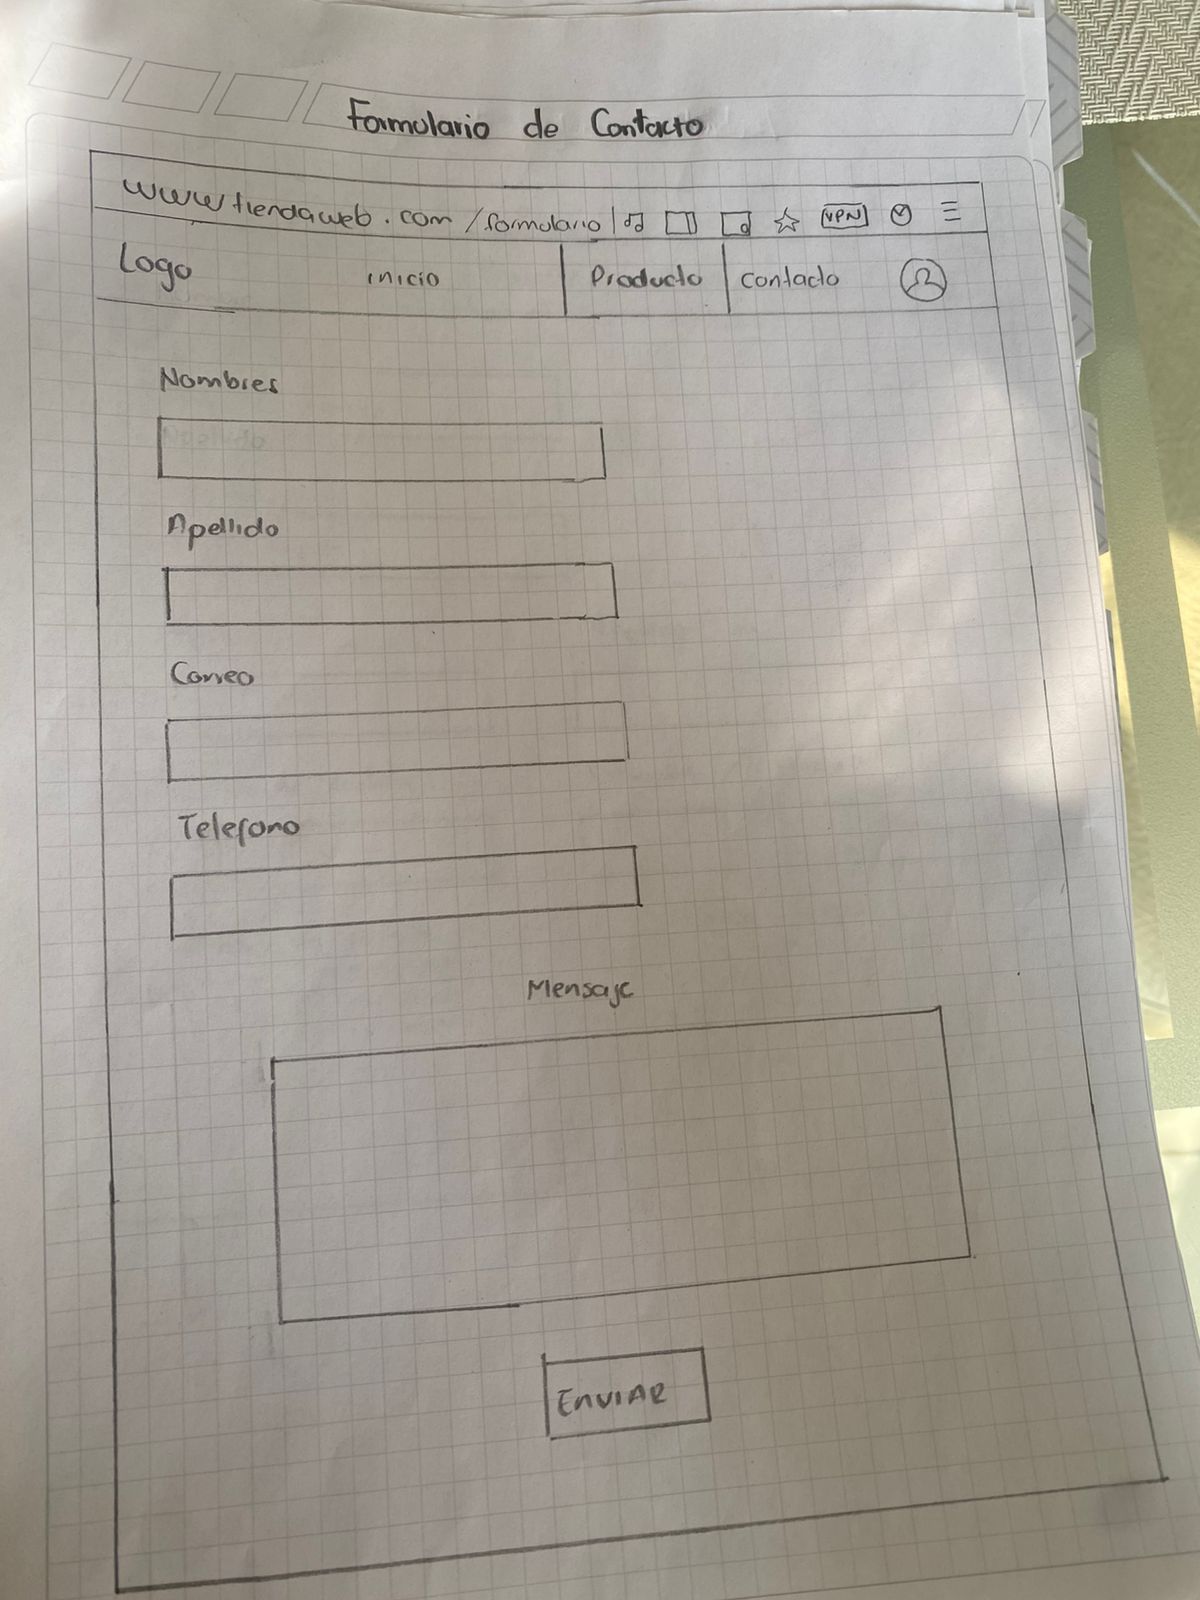 Formulario de Contacto
www.tiendaweb.com/formulario VPN
Logo inicio Producto contacto
Nombres
Apellido
Correo
Telefono
Mensaje
ENVIAR